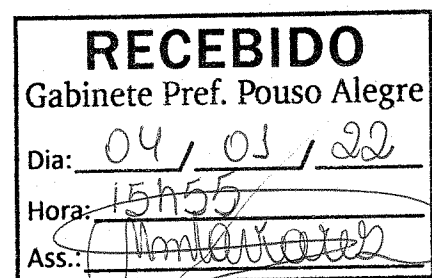 RECEBIDO
Gabinete Pref. Pouso Alegre
Dia: 04 / 01 / 22
Hora: 15h55
Ass.: